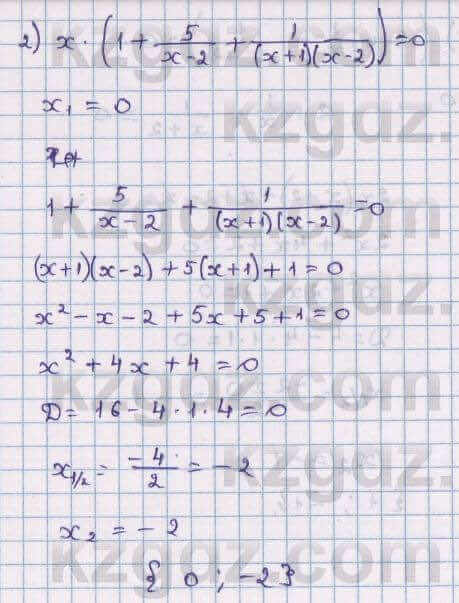 2) x · (1 + 5/(x-2) + 1/((x+1)(x-2))) = 0
x₁ = 0
1 + 5/(x-2) + 1/((x+1)(x-2)) = 0
(x+1)(x-2) + 5(x+1) + 1 = 0
x² - x - 2 + 5x + 5 + 1 = 0
x² + 4x + 4 = 0
D = 16 - 4 · 1 · 4 = 0
x₁/₂ = -4/2 = -2
x₂ = -2
{ 0 ; -2 }
kzgdz.com